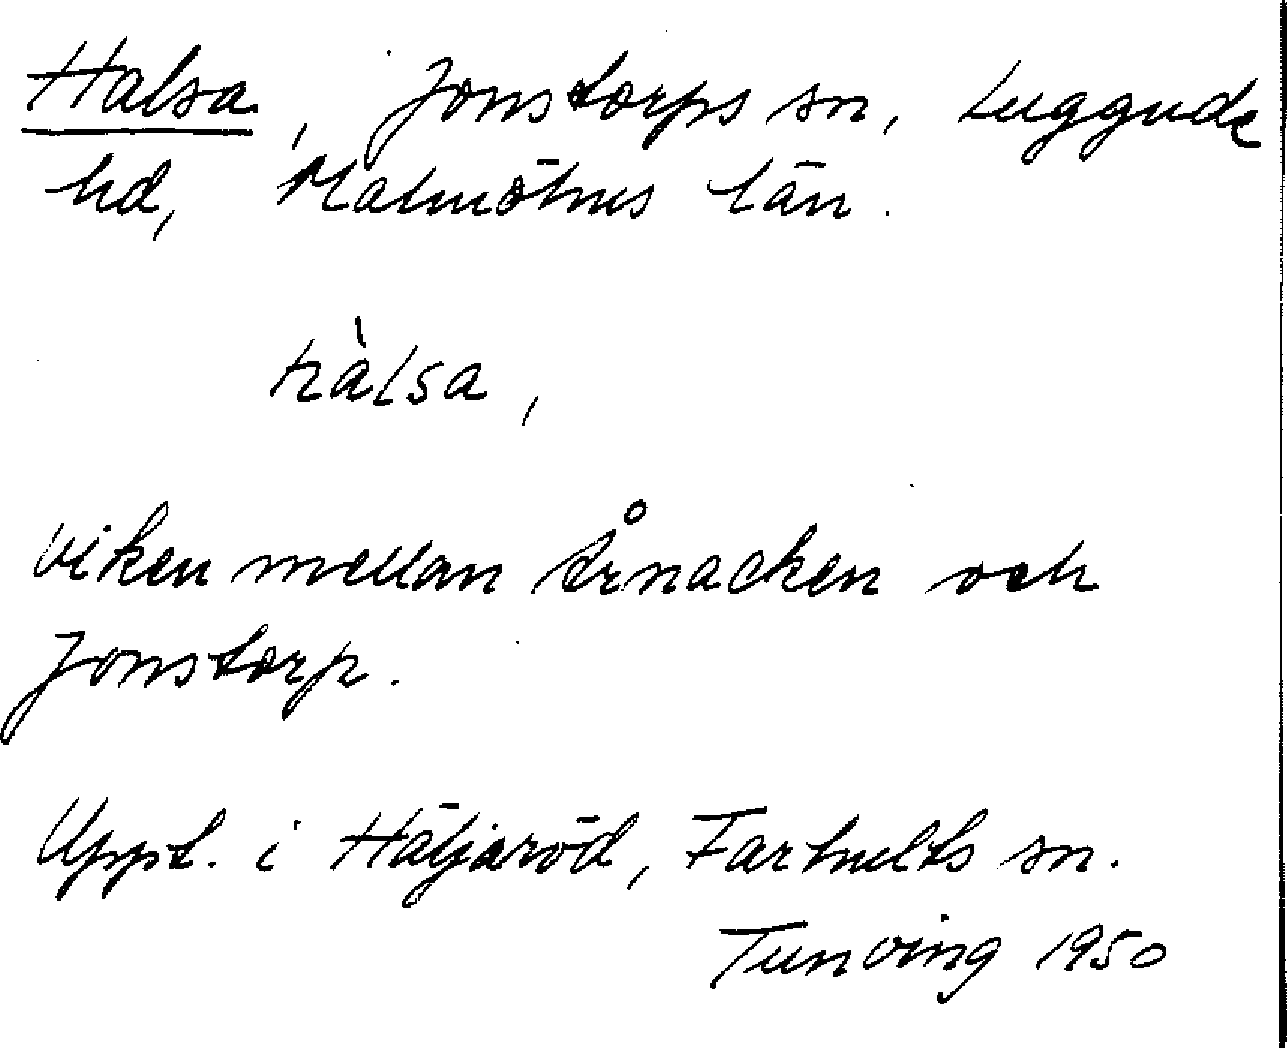 Halsa, Jonstorps sn, Luggude
hd, Malmöhus län.
hàlsa,
viken mellan Årnacken och
Jonstorp.
Uppt. i Häljaröd, Farhults sn.
Tunving 1950